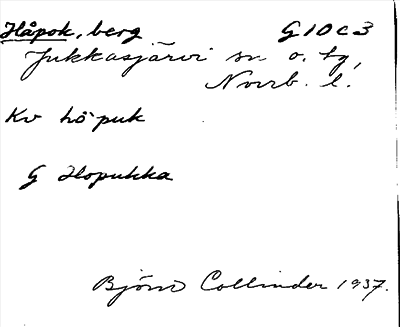 Håpok, berg G10c3
Jukkasjärvi sn o. tg,
Norrb. l.
Kv hǻpuk
G Hopukka
Björn Collinder 1937.